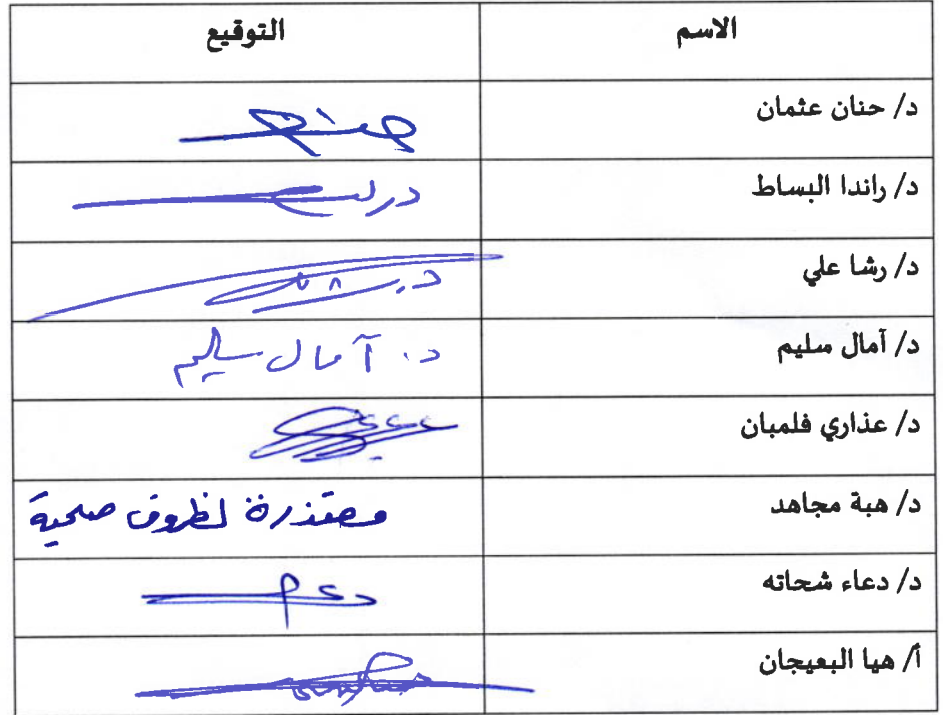 الاسم التوقيع
د/ حنان عثمان
د/ راندا البساط
د/ رشا علي
د/ آمال سليم د. آمال سليم
د/ عذاري فلمبان
د/ هبة مجاهد معتذرة لظروف صحية
د/ دعاء شحاته
أ/ هيا البعيجان